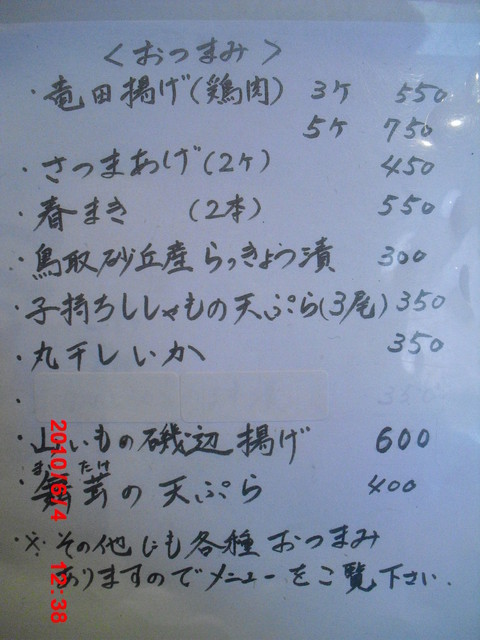 ＜おつまみ＞
・竜田揚げ(鶏肉) 3ヶ 550
5ヶ 750
・さつまあげ(2ヶ) 450
・春まき (2本) 550
・鳥取砂丘産らっきょう漬 300
・子持ちししゃもの天ぷら(3尾) 350
・丸干しいか 350
・
・山いもの磯辺揚げ 600
まいたけ
・舞茸の天ぷら 400
・※その他にも各種おつまみ
ありますのでメニューをご覧下さい.
2010/6/4 12:38